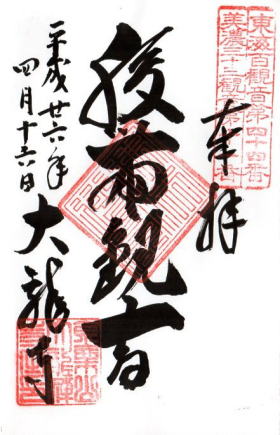 東海百観音第四十四番
美濃三十三観音第十一番
奉拝
腹帯観音
大龍寺
平成廿六年
四月十六日